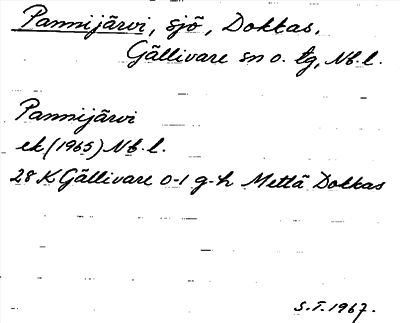 Pannijärvi, sjö, Dokkas,
Gällivare sn o. tg, Nb. l.
Pannijärvi
ek (1965) Nb. l.
28 K Gällivare 0-1 g-h Mettä Dokkas
S.T. 1967.